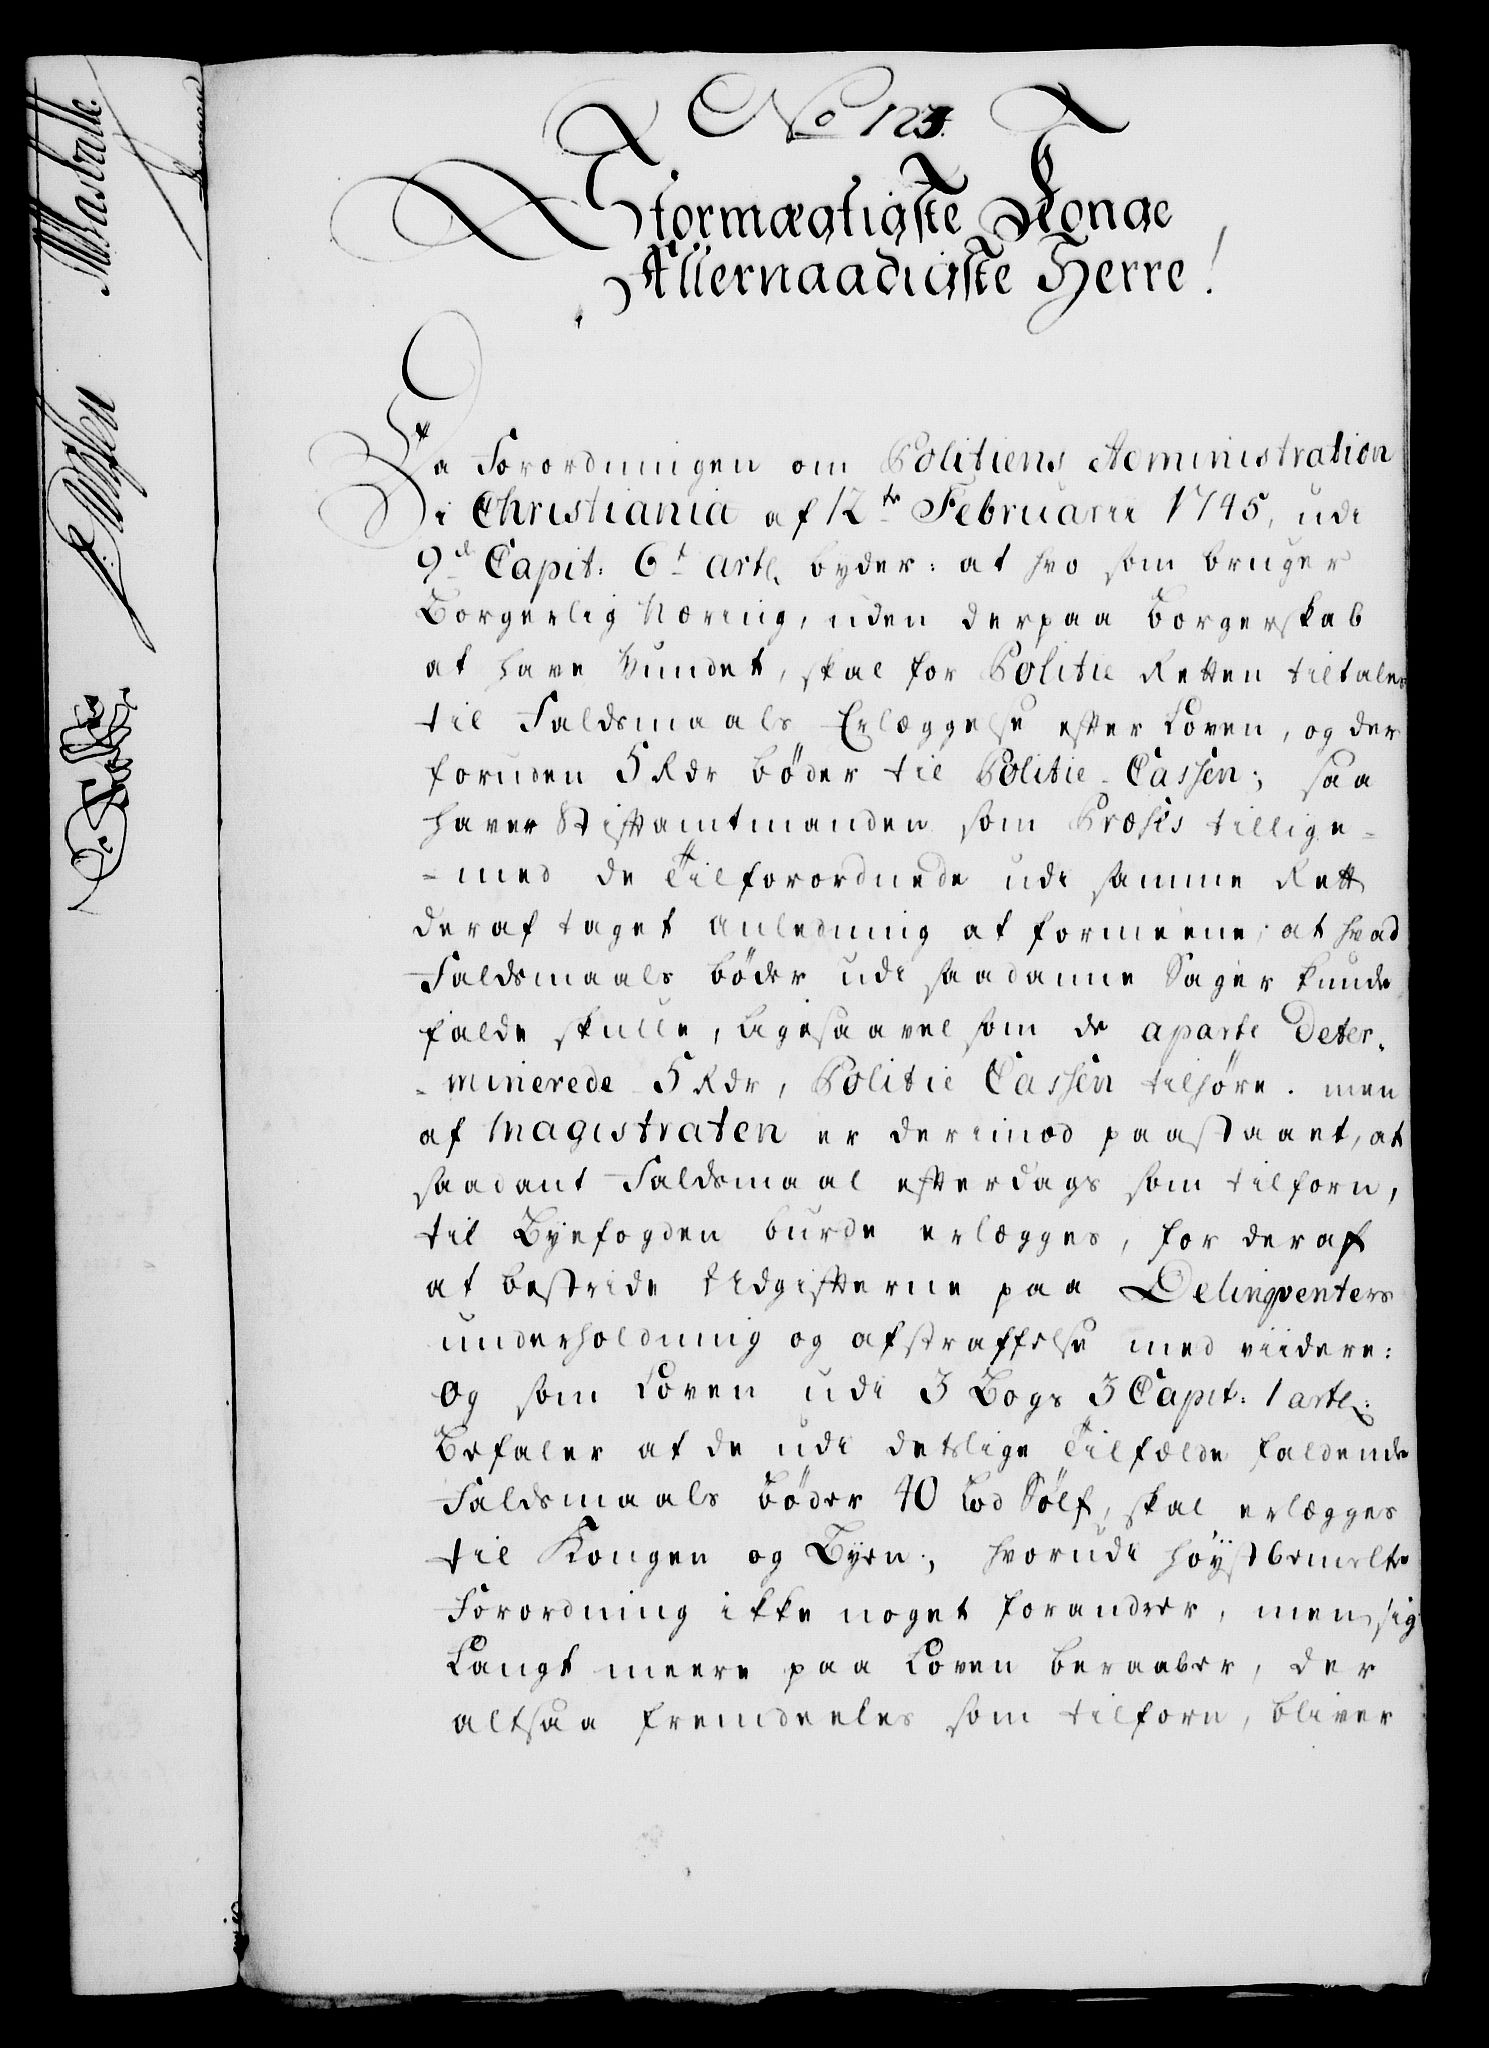 No 123.
Stormægtigste Konge
Allernaadigste Herre!
Da Forordningen om Politiens Administration
i Christiania af 12te Februarii 1745, udi
9d Capit: 6t artl. byder: at hvo som bruger
Borgerlig Næring, uden derpaa Borgerskab
at have Vundet, skal for Politie Retten tiltales
til Faldsmaals Erlæggelse efter Loven, og der
foruden 5 Rdr bøder til Politie-Cassen; saa
haver Stiftamtmanden som Præses tillige-
-med de Tilforordnede udi samme Rett
deraf taget Anledning at formeene, at hvad
Faldsmaals bøder udi saadanne Sager kunde
falde skulle, ligesaavel som de aparte Deter-
-minerede 5 Rdr, Politie Cassen tilhøre. men
af Magistraten er derimod paastaaet, at
saadant Faldsmaal efterdags som tilforn,
til Byefogden burde erlægges, for deraf
at bestride Udgifterne paa Delinqventers
underholdning og afstraffelse med viidere:
Og som Loven udi 3 Bogs 3 Capit: 1 artl:
Befaler at de udi deslige Tilfælde faldende
Faldsmaals bøder 40 Lod Sølf, skal erlægges
til Kongen og Byen; hvorudi høystbemelte
Forordning ikke noget forandrer, men sig
Langt meere paa Loven beraaber, der
altsaa fremdeeles som tilforn, bliver